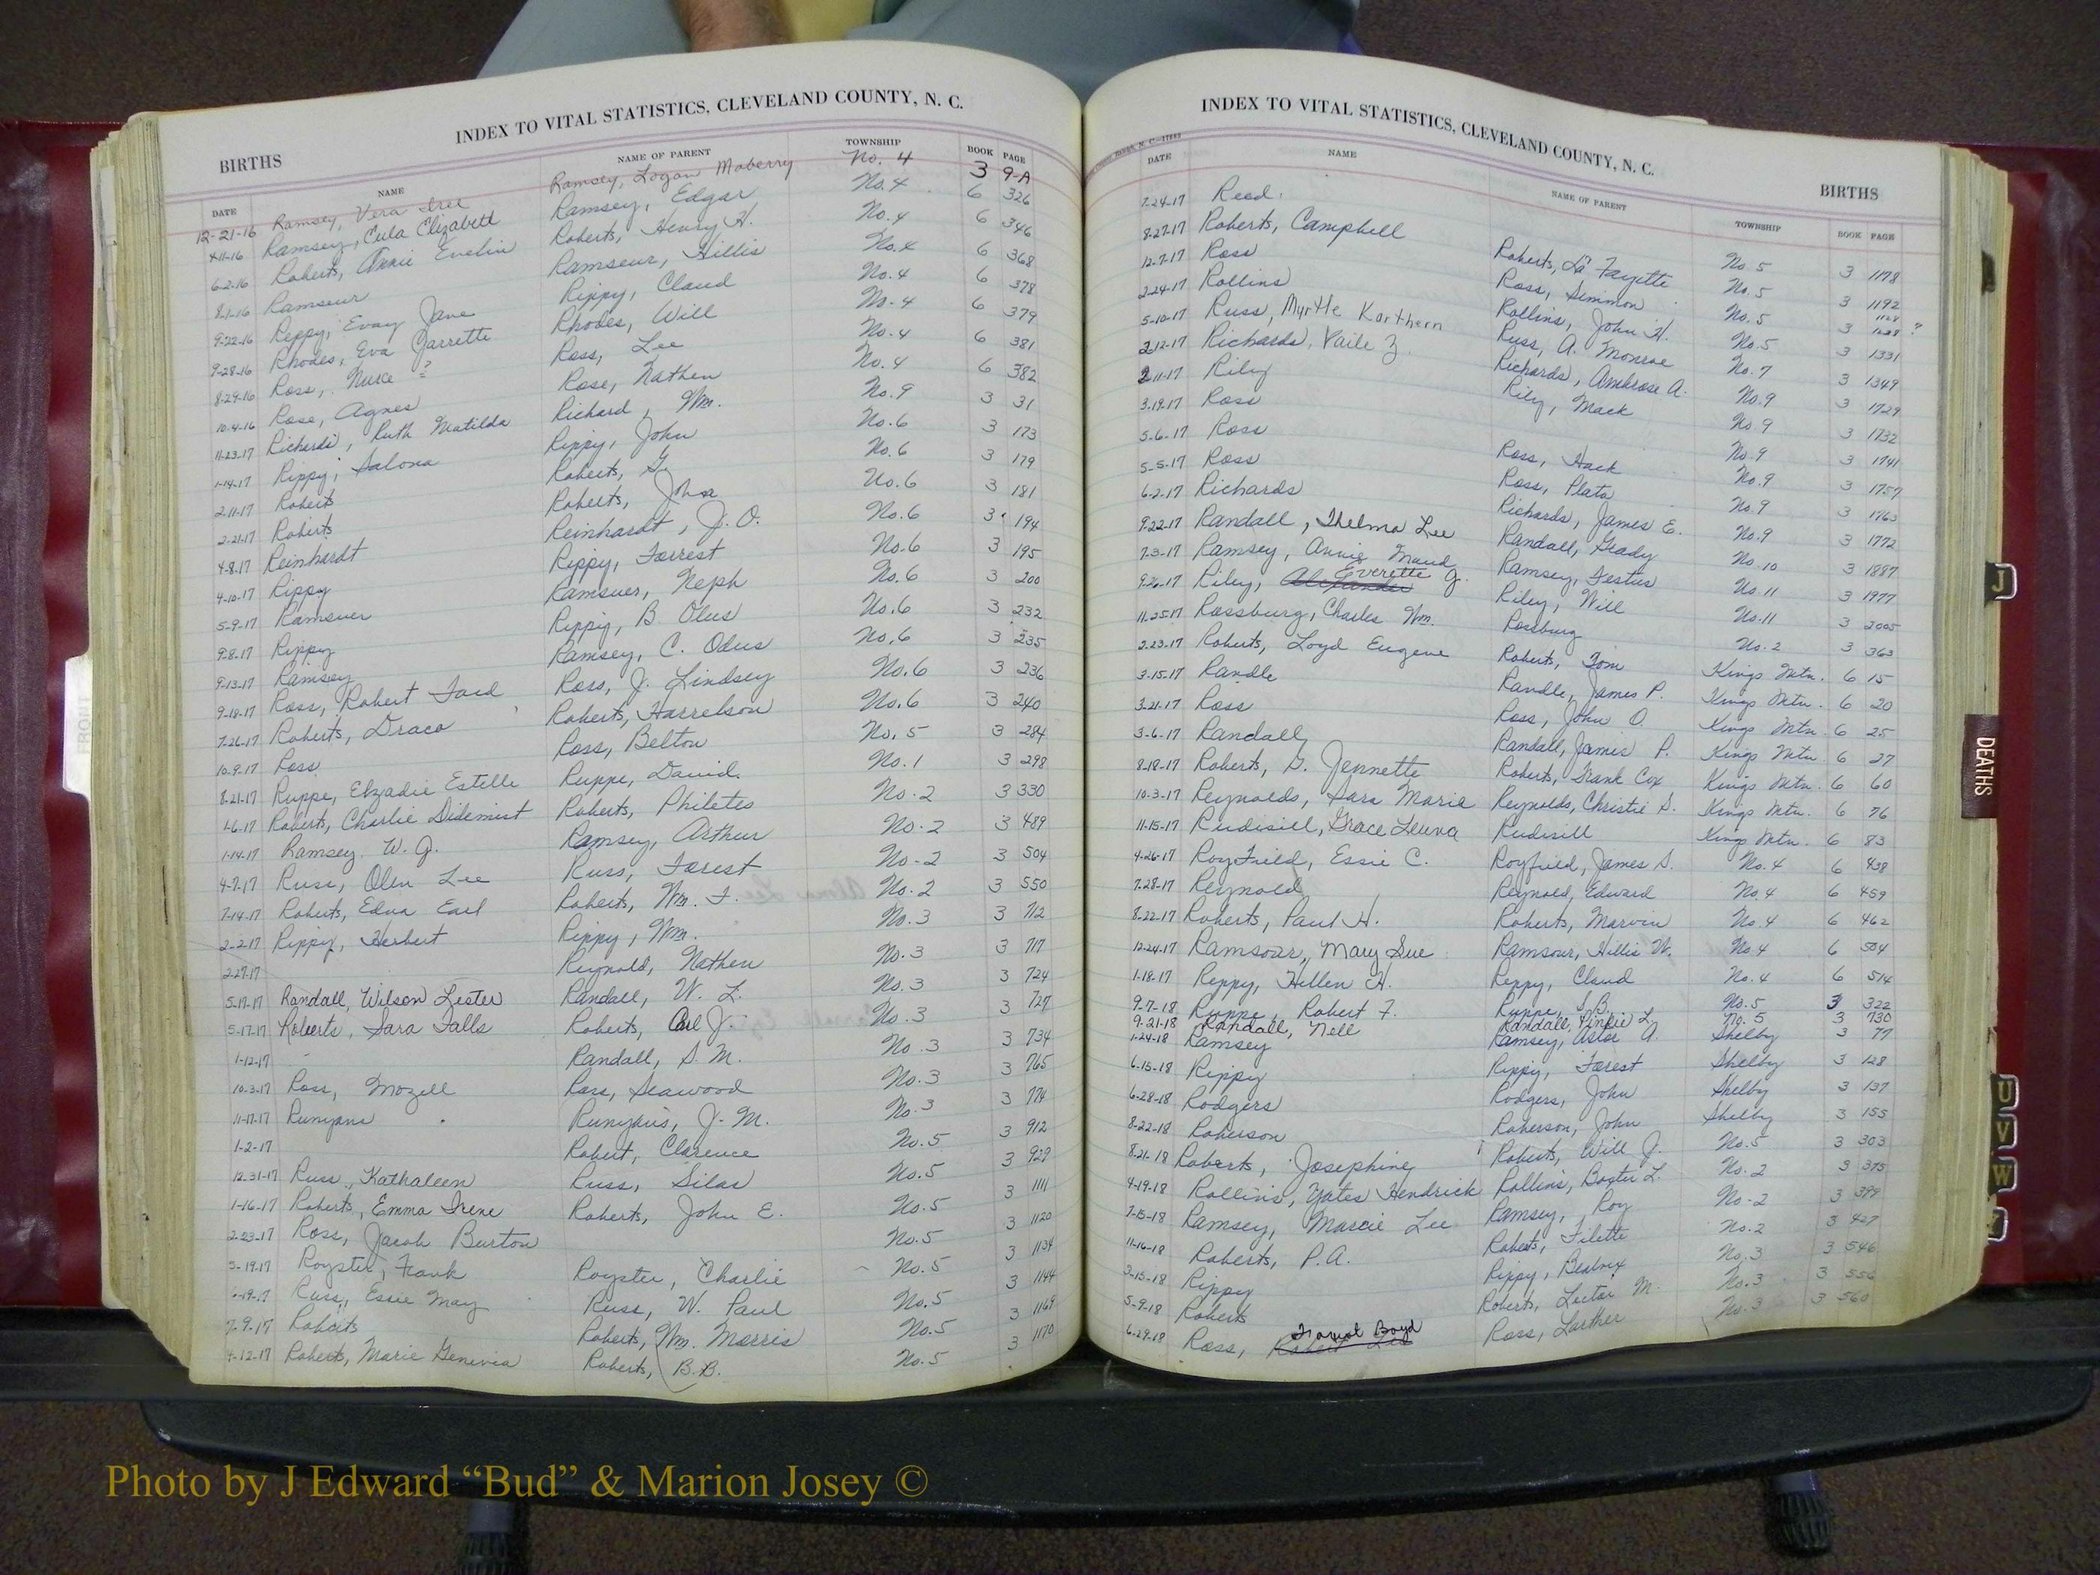 INDEX TO VITAL STATISTICS, CLEVELAND COUNTY, N. C.
BIRTHS
DATE NAME NAME OF PARENT TOWNSHIP BOOK PAGE
12-21-16 Ramsey, Vera Iree Ramsey, Logan Maberry No. 4 3 9-A
4-11-16 Ramsey, Eula Elizabeth Ramsey, Edgar No. 4 6 326
6-2-16 Roberts, Annie Evelin Roberts, Henry H. No. 4 6 346
8-1-16 Ramseur Ramseur, Hillis No. 4 6 368
9-22-16 Reppy, Evay Jane Rippy, Claud No. 4 6 378
9-28-16 Rhodes, Eva Garrette Rhodes, Will No. 4 6 379
8-29-16 Ross, ? Ross, Lee No. 4 6 381
10-4-16 Rose, Agnes Rose, Nathen No. 4 6 382
11-23-17 Richards, Ruth Matilda Richard, Wm. No. 9 3 31
1-14-17 Rippy, Salona Rippy, John No. 6 3 173
2-11-17 Roberts Roberts, G. No. 6 3 179
2-21-17 Roberts Roberts, John No. 6 3 181
4-8-17 Reinhardt Reinhardt, J. O. No. 6 3 194
4-10-17 Rippy Rippy, Forrest No. 6 3 195
5-9-17 Ramsuer Ramsuer, Neph No. 6 3 200
9-8-17 Rippy Rippy, B. Olus No. 6 3 232
9-13-17 Ramsey Ramsey, C. Odus No. 6 3 235
9-18-17 Ross, Robert Ford Ross, J. Lindsey No. 6 3 236
7-26-17 Roberts, Draco Roberts, Harrelson No. 6 3 240
10-9-17 Ross Ross, Belton No. 5 3 284
8-21-17 Ruppe, Elzadie Estelle Ruppe, David No. 1 3 298
1-6-17 Roberts, Charlie Didemist Roberts, Philetes No. 2 3 330
1-14-17 Ramsey, W. J. Ramsey, Arthur No. 2 3 489
4-7-17 Russ, Olen Lee Russ, Forest No. 2 3 504
7-14-17 Roberts, Edna Earl Roberts, Wm. F. No. 2 3 550
2-2-17 Rippy, Herbert Rippy, Wm. No. 3 3 712
2-27-17 Reynold, Nathen No. 3 3 717
5-17-17 Randall, Wilson Lester Randall, W. L. No. 3 3 724
5-17-17 Roberts, Sara Falls Roberts, Carl J. No. 3 3 727
1-12-17 Randall, S. M. No. 3 3 734
10-3-17 Ross, Mozell Ross, Seawood No. 3 3 765
11-17-17 Runyans Runyans, J. M. No. 3 3 774
1-2-17 Robert, Clarence No. 5 3 912
12-31-17 Russ, Kathaleen Russ, Silas No. 5 3 929
1-16-17 Roberts, Emma Irene Roberts, John E. No. 5 3 1111
2-23-17 Ross, Jacob Burton No. 5 3 1120
5-19-17 Royster, Frank Royster, Charlie No. 5 3 1134
Russ, Essie May Russ, W. Paul No. 5 3 1144
7-9-17 Roberts Roberts, Wm. Morris No. 5 3 1169
4-12-17 Roberts, Marie Genevia Roberts, B. B. No. 5 3 1170
INDEX TO VITAL STATISTICS, CLEVELAND COUNTY, N. C.
BIRTHS
DATE NAME NAME OF PARENT TOWNSHIP BOOK PAGE
7-24-17 Reed
8-27-17 Roberts, Campbell Roberts, La Fayette No. 5 3 1178
12-7-17 Ross Ross, Simmon No. 5 3 1192
2-24-17 Rollins Rollins, John H. No. 5 3 1228 ?
5-10-17 Russ, Myrtle Korthern Russ, A. Monroe No. 5 3 1331
2-12-17 Richards, Vaile Z. Richards, Ambrose A. No. 7 3 1349
2-11-17 Riley Rily, Mack No. 9 3 1729
3-19-17 Ross No. 9 3 1732
5-6-17 Ross Ross, Hack No. 9 3 1741
5-5-17 Ross Ross, Plato No. 9 3 1757
6-2-17 Richards Richards, James E. No. 9 3 1763
9-22-17 Randall, Thelma Lee Randall, Grady No. 9 3 1772
7-3-17 Ramsey, Annie Maud Ramsey, Festus No. 10 3 1887
9-26-17 Riley, Alexander Everette J. Riley, Will No. 11 3 1977
11-25-17 Rossburg, Charles Wm. Rossburg No. 11 3 2005
2-23-17 Roberts, Loyd Eugene Roberts, Tom No. 2 3 363
3-15-17 Randle Randle, James P. Kings Mtn. 6 15
3-21-17 Ross Ross, John O. Kings Mtn. 6 20
3-6-17 Randall Randall, James P. Kings Mtn. 6 25
8-18-17 Roberts, G. Jennette Roberts, Frank Cox Kings Mtn. 6 27
10-3-17 Reynolds, Sara Marie Reynolds, Christie S. Kings Mtn. 6 60
11-15-17 Rudisill, Grace Leuna Rudisill Kings Mtn. 6 76
4-26-17 Royfield, Essie C. Royfield, James S. Kings Mtn. 6 83
7-28-17 Reynold Reynold, Edward No. 4 6 438
8-22-17 Roberts, Paul H. Roberts, Marvin No. 4 6 459
12-24-17 Ramsour, Mary Sue Ramsour, Hillis W. No. 4 6 462
1-18-17 Reppy, Hellen H. Reppy, Claud No. 4 6 504
No. 4 6 514
9-7-18 Ruppe, Robert F. Ruppe, S. B. No. 5 3 322
9-21-18 Randall, Nell Randall, L. No. 5 3 730
1-24-18 Ramsey Ramsey, Astor A. Shelby 3 77
6-15-18 Rippy Rippy, Forest Shelby 3 128
6-28-18 Rodgers Rodgers, John Shelby 3 137
8-22-18 Roberson Roberson, John Shelby 3 155
8-21-18 Roberts, Josephine Roberts, Will J. No. 5 3 303
4-19-18 Rollins, Yates Hendrick Rollins, Baxter L. No. 2 3 375
7-15-18 Ramsey, Marcie Lee Ramsey, Roy No. 2 3 399
11-16-18 Roberts, P. A. Roberts, Filette No. 2 3 427
3-15-18 Rippy Rippy, Beatrix No. 3 3 546
5-9-18 Roberts Roberts, Lector M. No. 3 3 556
6-29-18 Ross, Robert Lee Forest Boyd Ross, Larther No. 3 3 560
FRONT
J
DEATHS
U
V
W
Y
Photo by J Edward “Bud” & Marion Josey ©